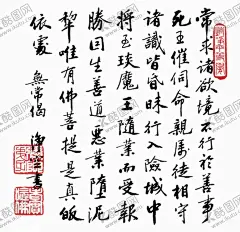 常求諸欲境不行於善事
死王催伺命親屬徒相守
諸識皆昏昧行入險城中
將至琰魔王隨業而受報
勝因生善道惡業墮泥
犁唯有佛菩提是真皈
依處 無常偈